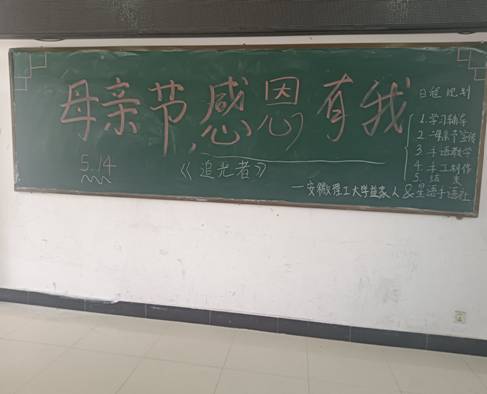 母亲节,感恩有我
5.14
《追光者》
——安徽理工大学益家人&星语手语社
日程规划
1.学习辅导
2.母亲节宣传
3.手语教学
4.手工制作
5.结束